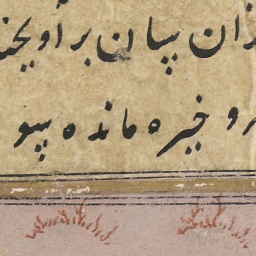 ذان پیلان برآویخت
رو خیره مانده پیو